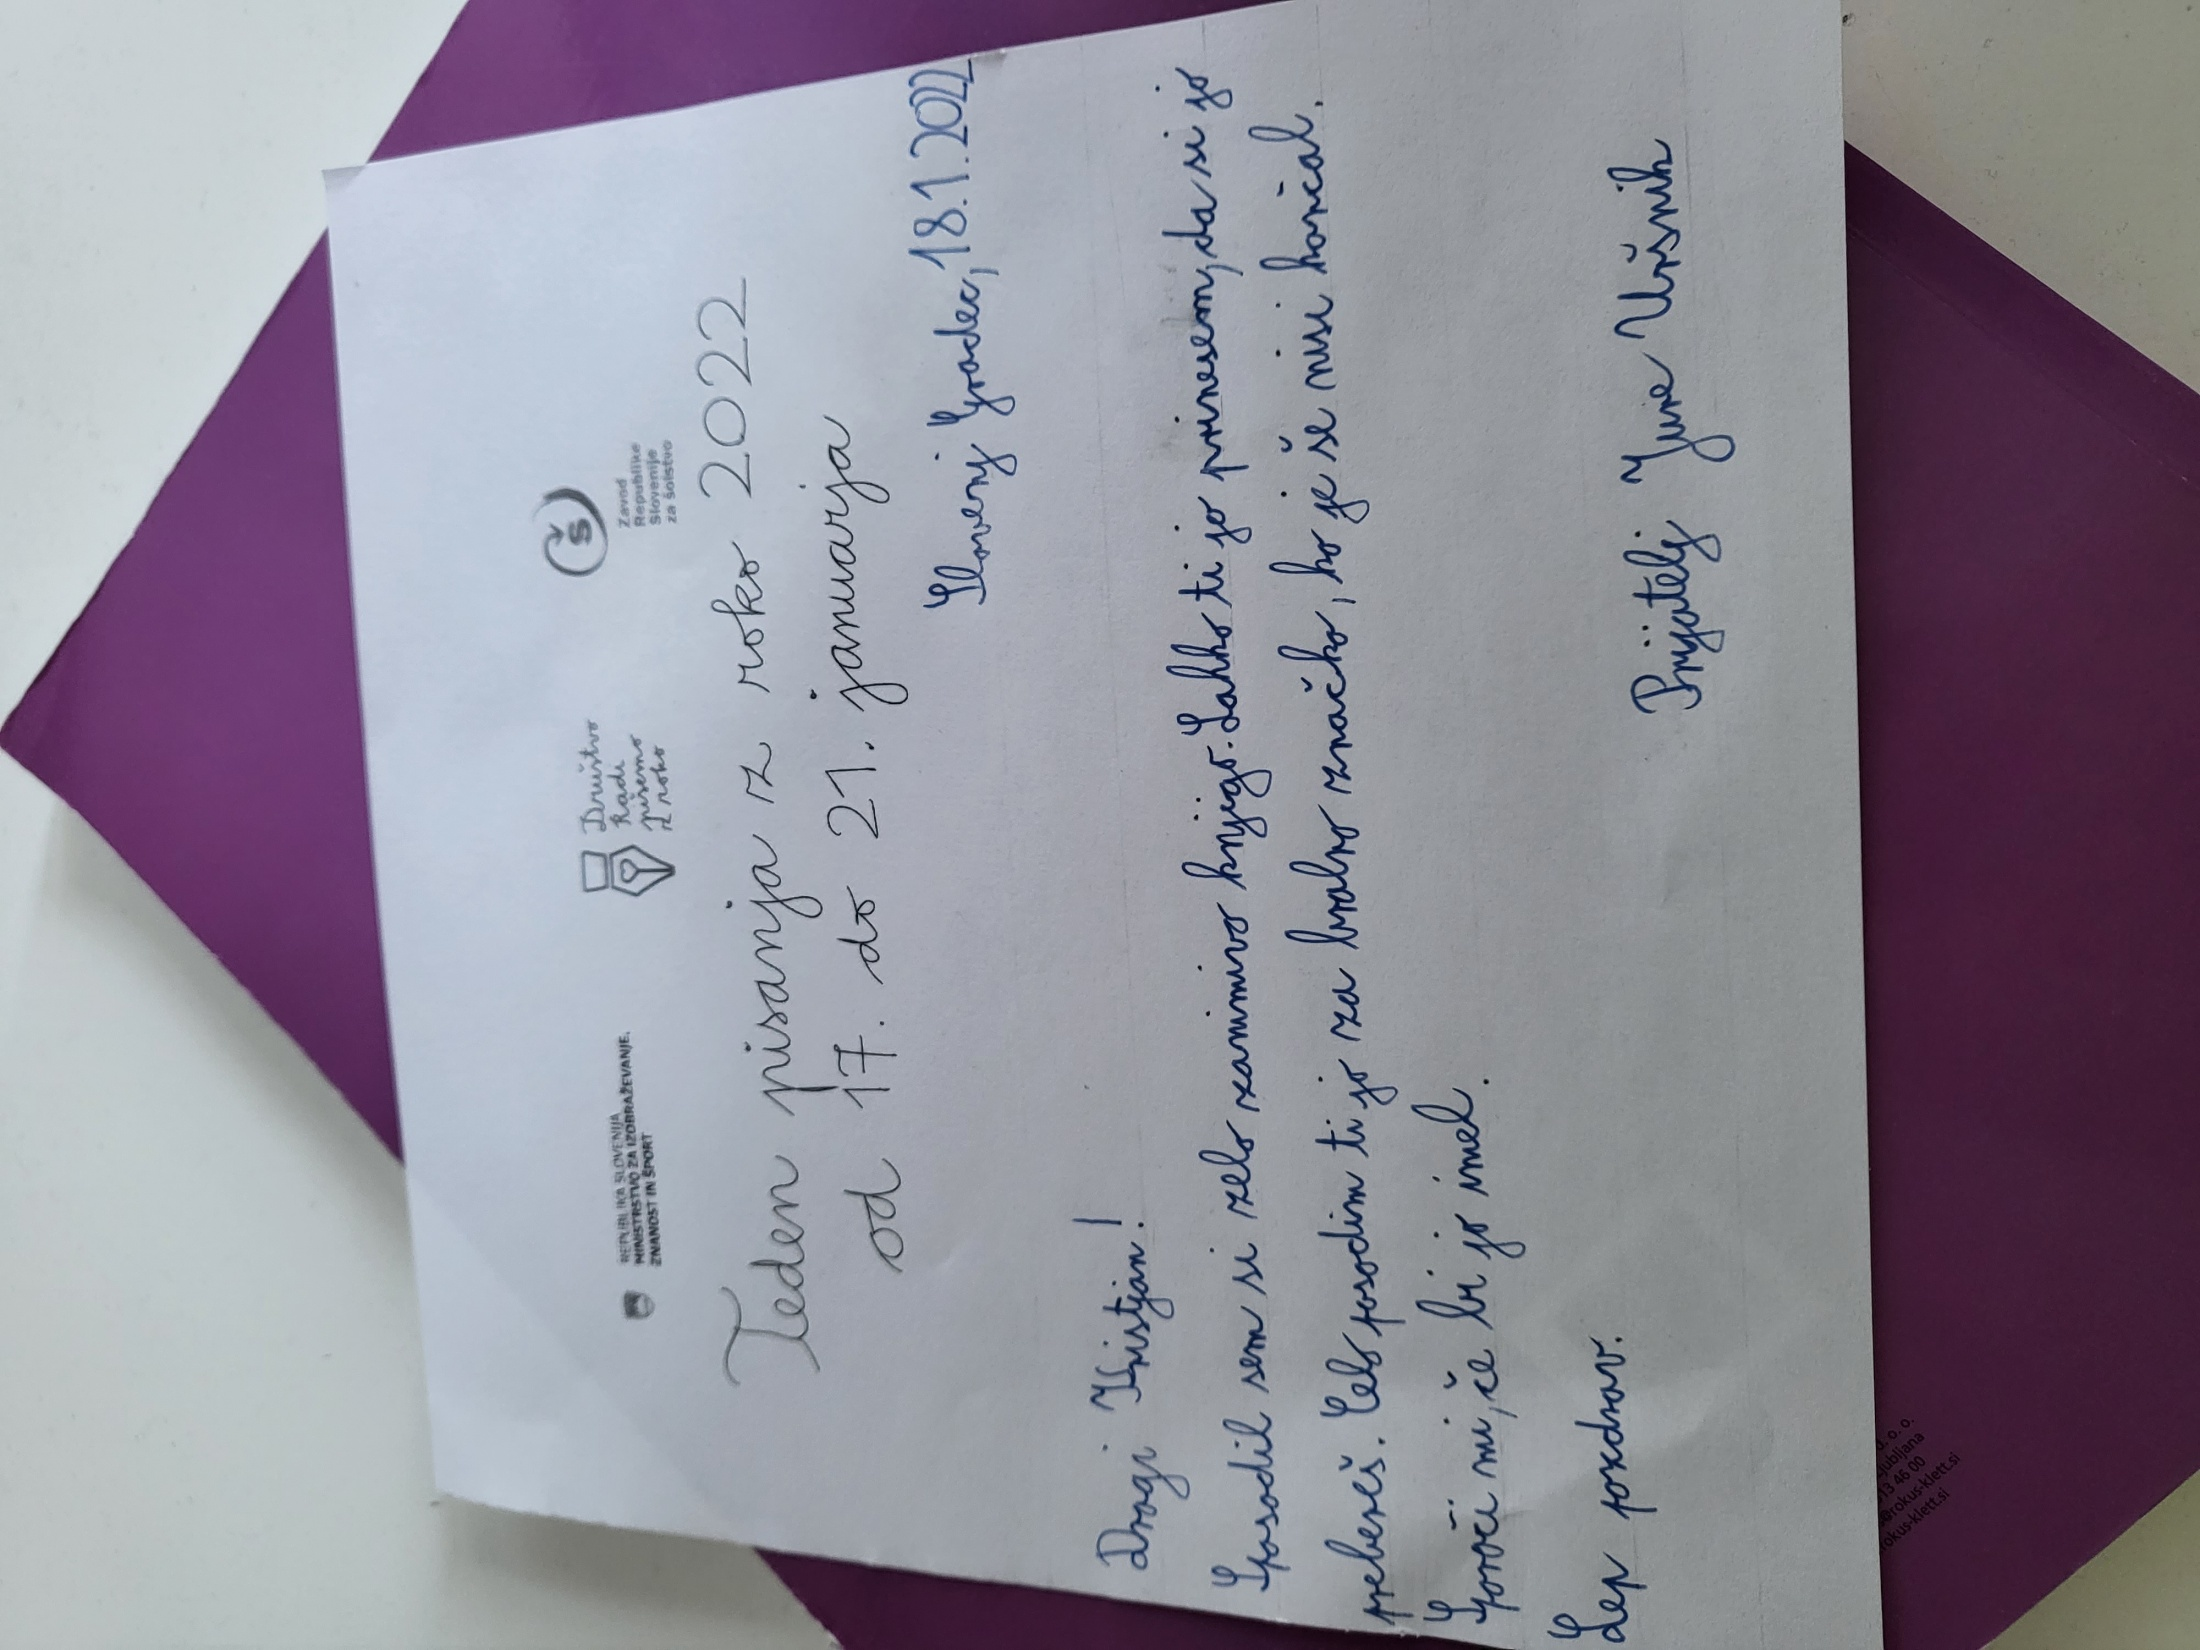 REPUBLIKA SLOVENIJA
MINISTRSTVO ZA IZOBRAŽEVANJE,
ZNANOST IN ŠPORT
Društvo
Radi
pišemo
z roko
Š
Zavod
Republike
Slovenije
za šolstvo
Teden pisanja z roko 2022
od 17. do 21. januarja
Slovenj Gradec, 18.1.2022
Dragi Kristjan!
Sposodil sem si zelo zanimivo knjigo. Lahko ti jo prinesem, da si jo
prebereš. Celo posodim ti jo za bralno značko, ko je še nisi končal.
Sporoči mi, če bi jo imel.
Lep pozdrav.
Prijatelj Jure Uršnik
d. o. o.
Ljubljana
13 46 00
@rokus-klett.si
rokus-klett.si